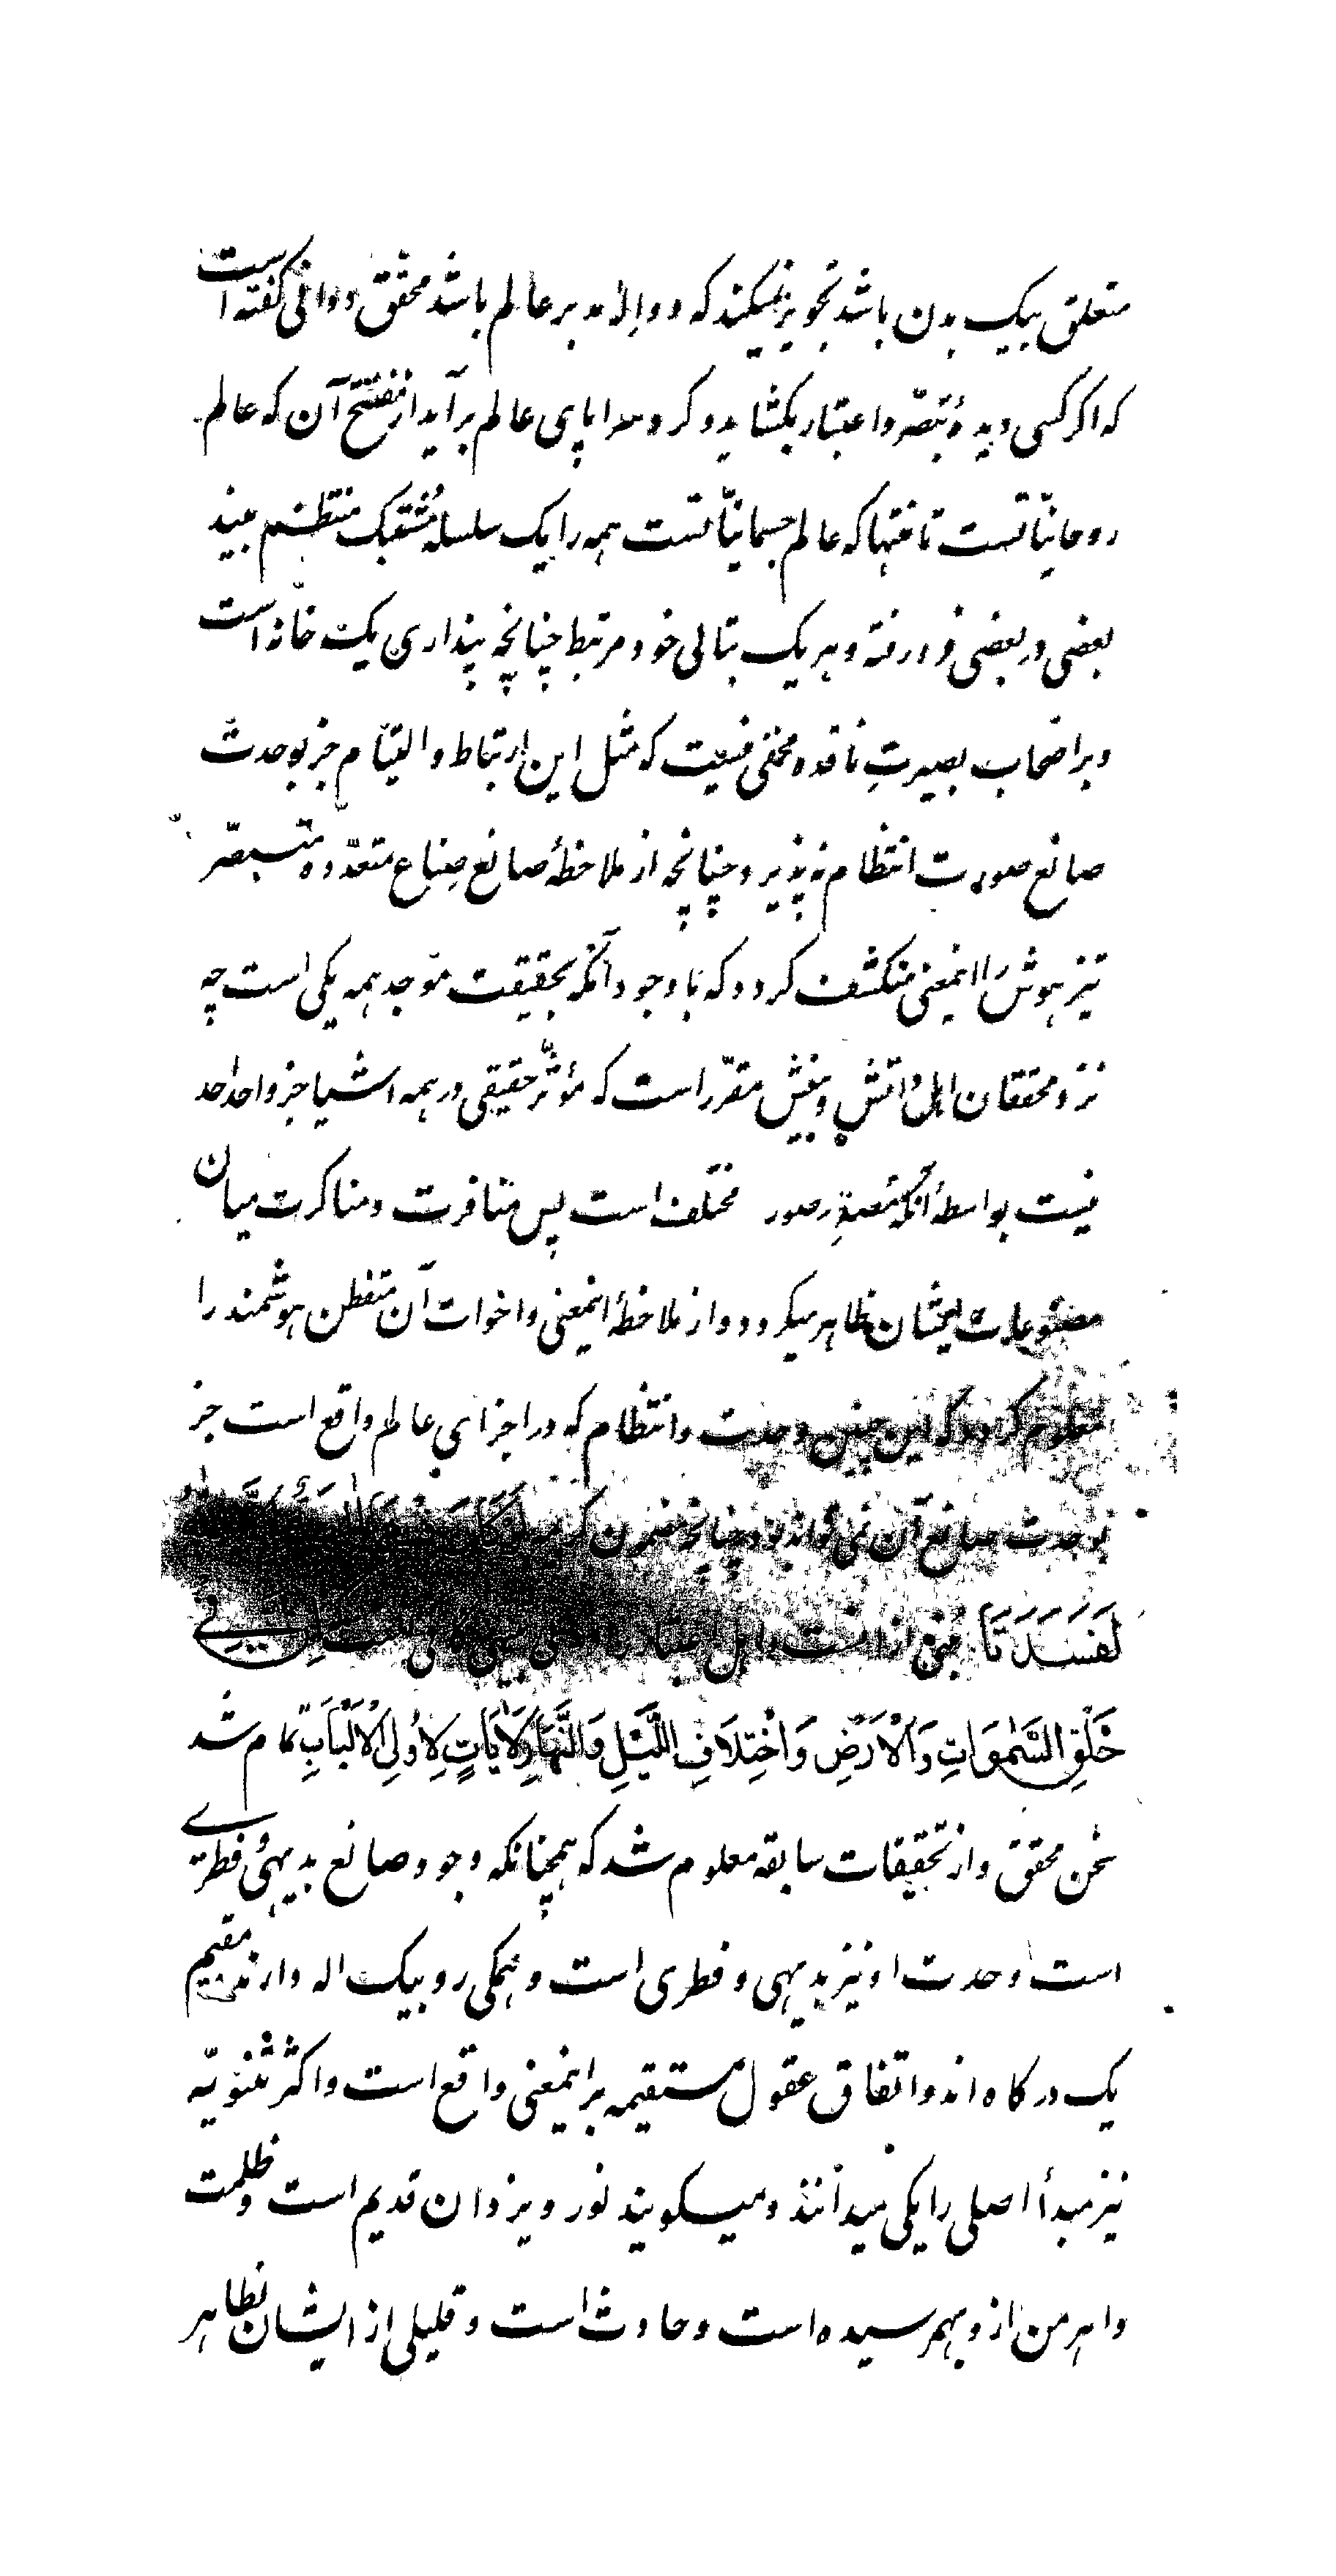 متعلق بیک بدن باشد تجویز نمیکند که دو اله مدبر عالم باشد محقق دوانی گفته است
که اکر کسی دیدهٔ تبصر و اعتبار بکشاید و کرد سراپای عالم برآید از مفتتح آن که عالم
روحانیّاتست تا منتها که عالم جسمانیّاتست همه را یک سلسله مشتبک منتظم بیند
بعضی در بعضی فرو رفته و هر یک بتالی خود مرتبط چنانچه پنداری یک خانه است
و بر اصحاب بصیرتِ ناقده مخفی نیست که مثل این ارتباط و التیام جز بوحدت
صانع صورت انتظام نه پذیرد چنانچه از ملاحظهٔ صانع صناع متعدّده متبصّر
تیز هوش را اینمعنی منکشف کردد که با وجود آنکه بحقیقت موجد همه یکی است چه
نزد محققان اهل دانش و بینش مقرّر است که مؤثر حقیقی در همه اشیا جز واحد احد
نیست بواسطهٔ آنکه مصدر صور مختلف است پس منافرت و مناکرت میان
مصنوعات ایشان ظاهر میکردد و از ملاحظهٔ اینمعنی و اخوات آن متفطن هوشمند را
معلوم کردد که این چنین وحدت و انتظام که در اجزای عالم واقع است جز
بوحدت صانع آن نمی تواند بود چنانچه مضمون کریمه لَوْ كَانَ
لَفَسَدَتَا مبنی از آنست
خَلْقِ السَّمٰوَاتِ وَالْاَرْضِ وَاخْتِلَافِ اللَّيْلِ وَالنَّهَارِ لَاٰيَاتٍ لِاُولِى الْاَلْبَابِ تمام شد
سخن محقق و از تحقیقات سابقه معلوم شد که همچنانکه وجود صانع بدیهیٔ فطری
است وحدت او نیز بدیهی و فطری است و همکی رو بیک اله دارند مقیم
یک درکاه اند و اتفاق عقول مستقیمه بر اینمعنی واقع است و اکثر ثنویّه
نیز مبدأ اصلی را یکی میدانند و میکویند نور و یزدان قدیم است و ظلمت
و اهرمن از و بهمرسیده است و حادث است و قلیلی از ایشان بظاهر